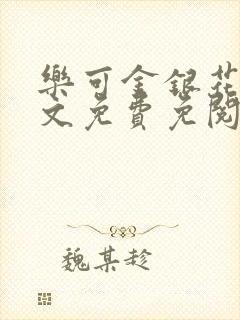 樂可金銀花
文免費免閱
魏某趁